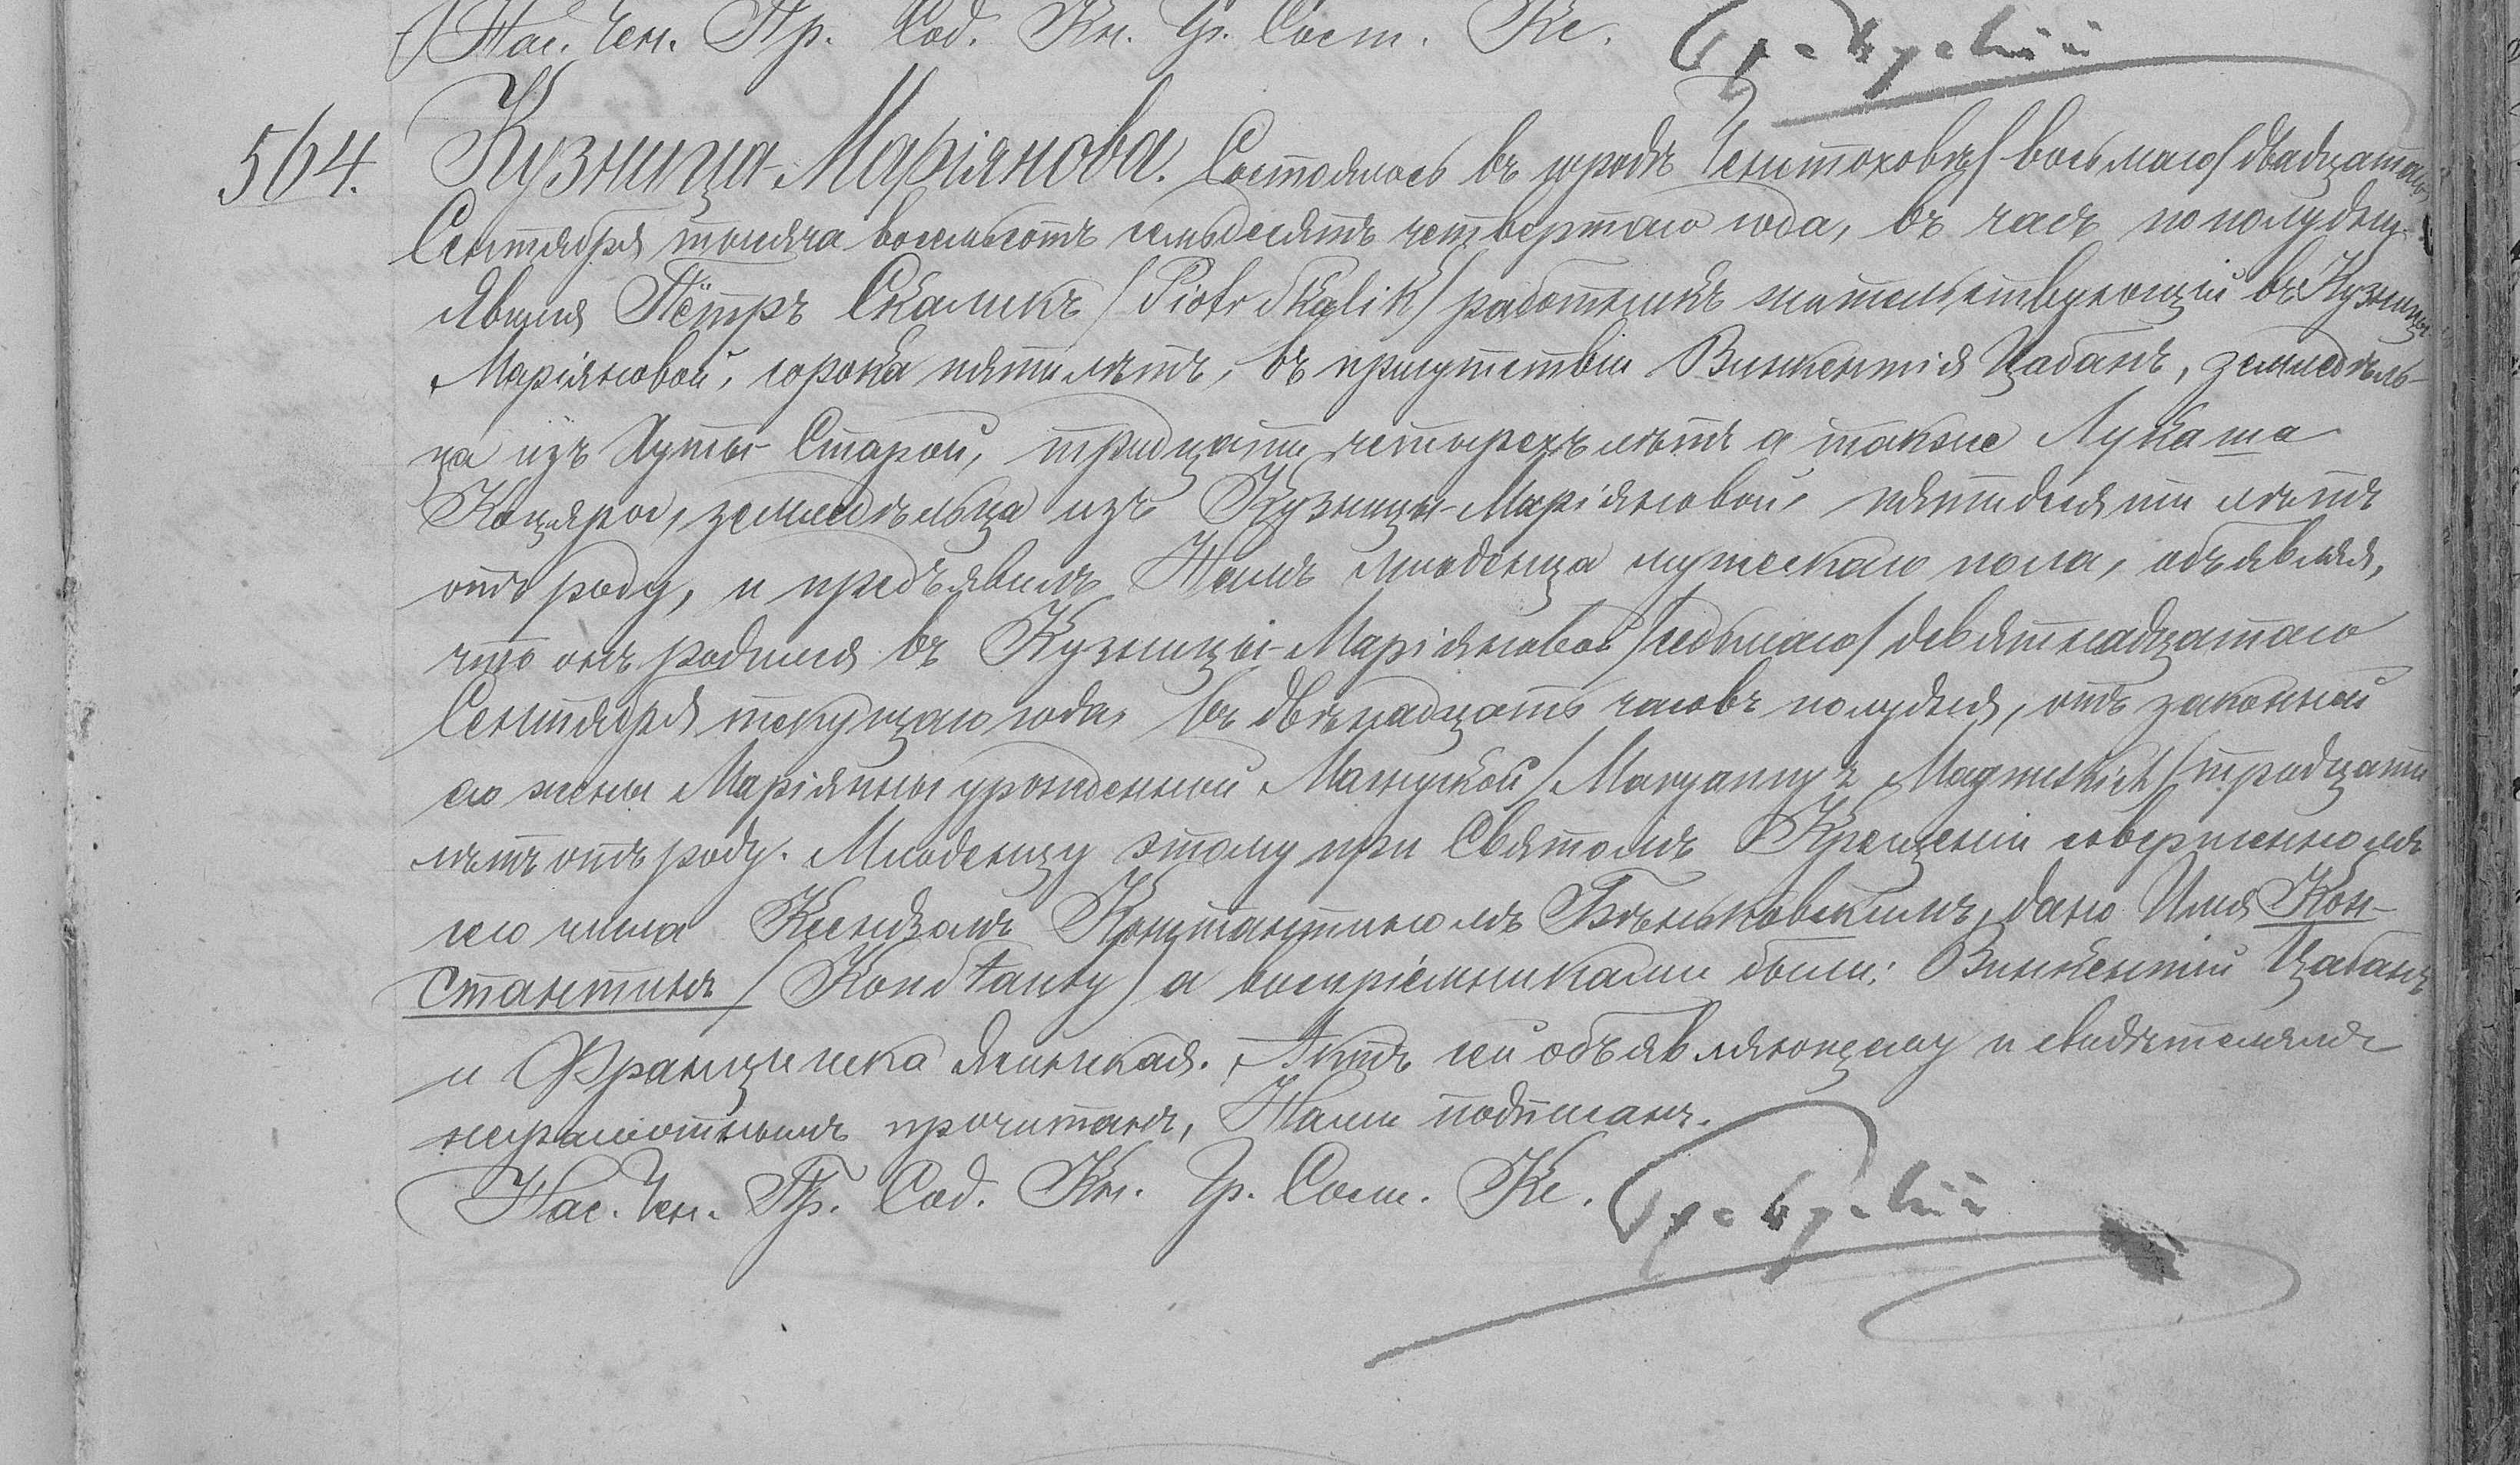 Нас. Чен. Пр. Сод. Кн. Гр. Сост. Кс.
564.
Кузница-Маріянова. Состоялось въ городѣ Ченстоховѣ /восьмаго/ двадцатаго
Сентября тысяча восемьсотъ семьдесятъ четвертаго года, въ часъ по полудни
явился Пётръ Скаликъ /Piotr Skalik/ работникъ жительствующій въ Кузницы
Маріяновой, сорока пяти лѣтъ, въ присутствіи Викентія Цабанъ, земледѣль-
ца изъ Гуты Старой, тридцати четырехъ лѣтъ а также Лукаша
земледѣльца изъ Кузницы-Маріяновой, пятидесяти лѣтъ
отъ роду, и предъявилъ Намъ младенца мужескаго пола, объявляя,
что онъ родился въ Кузницы-Маріяновой /седьмаго/ девятнадцатаго
Сентября текущаго года въ двѣнадцать часовъ полудня, отъ законной
его жены Маріянны урожденной /Maryanny z тридцати
лѣтъ отъ роду. Младенцу этому при Святомъ Крещеніи совершенномъ
сего числа Ксендзомъ Константиномъ дано Имя Кон-
стантинъ /Konstanty/ а воспріемниками были: Викентій Цабанъ
и Францишка Актъ сей объявляющему и свидѣтелямъ
неграмотнымъ прочитанъ, Нами подписанъ.
Нас. Чен. Пр. Сод. Кн. Гр. Сост. Кс.